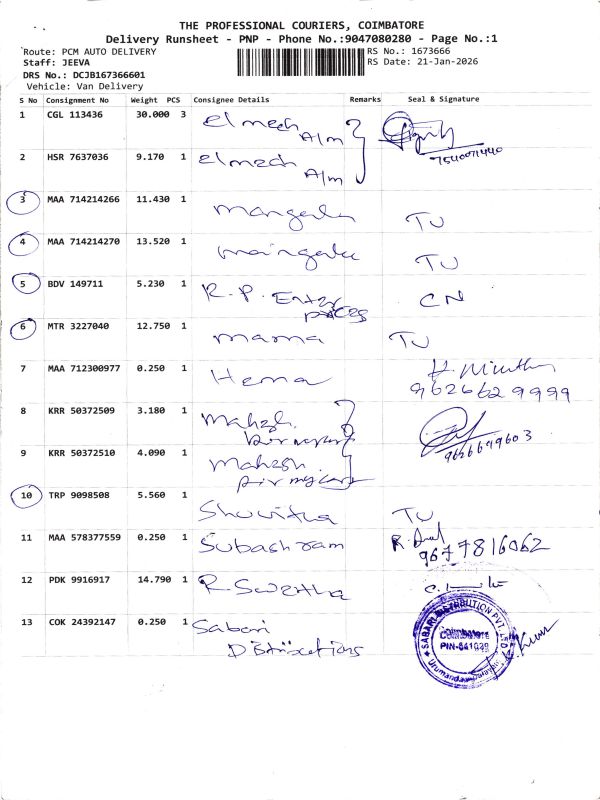 THE PROFESSIONAL COURIERS, COIMBATORE
Delivery Runsheet - PNP - Phone No.:9047080280 - Page No.:1
Route: PCM AUTO DELIVERY
RS No.: 1673666
Staff: JEEVA
RS Date: 21-Jan-2026
DRS No.: DCJB167366601
Vehicle: Van Delivery
S No Consignment No Weight PCS Consignee Details Remarks Seal & Signature
1 CGL 113436 30.000 3 elmech
A/m
7540071440
2 HSR 7637036 9.170 1 elmech
A/m
3 MAA 714214266 11.430 1 TU
4 MAA 714214270 13.520 1 TU
5 BDV 149711 5.230 1 R.P. CN
6 MTR 3227040 12.750 1 mama TU
7 MAA 712300977 0.250 1 Hema
9626629999
8 KRR 50372509 3.180 1 Mahesh
9626699603
9 KRR 50372510 4.090 1 Mahesh
10 TRP 9098508 5.560 1 TU
11 MAA 578377559 0.250 1 Subashram
9677816062
12 PDK 9916917 14.790 1 R Swetha
13 COK 24392147 0.250 1 Sabari
Distributions
SABARI DISTRIBUTION PVT LTD
Coimbatore